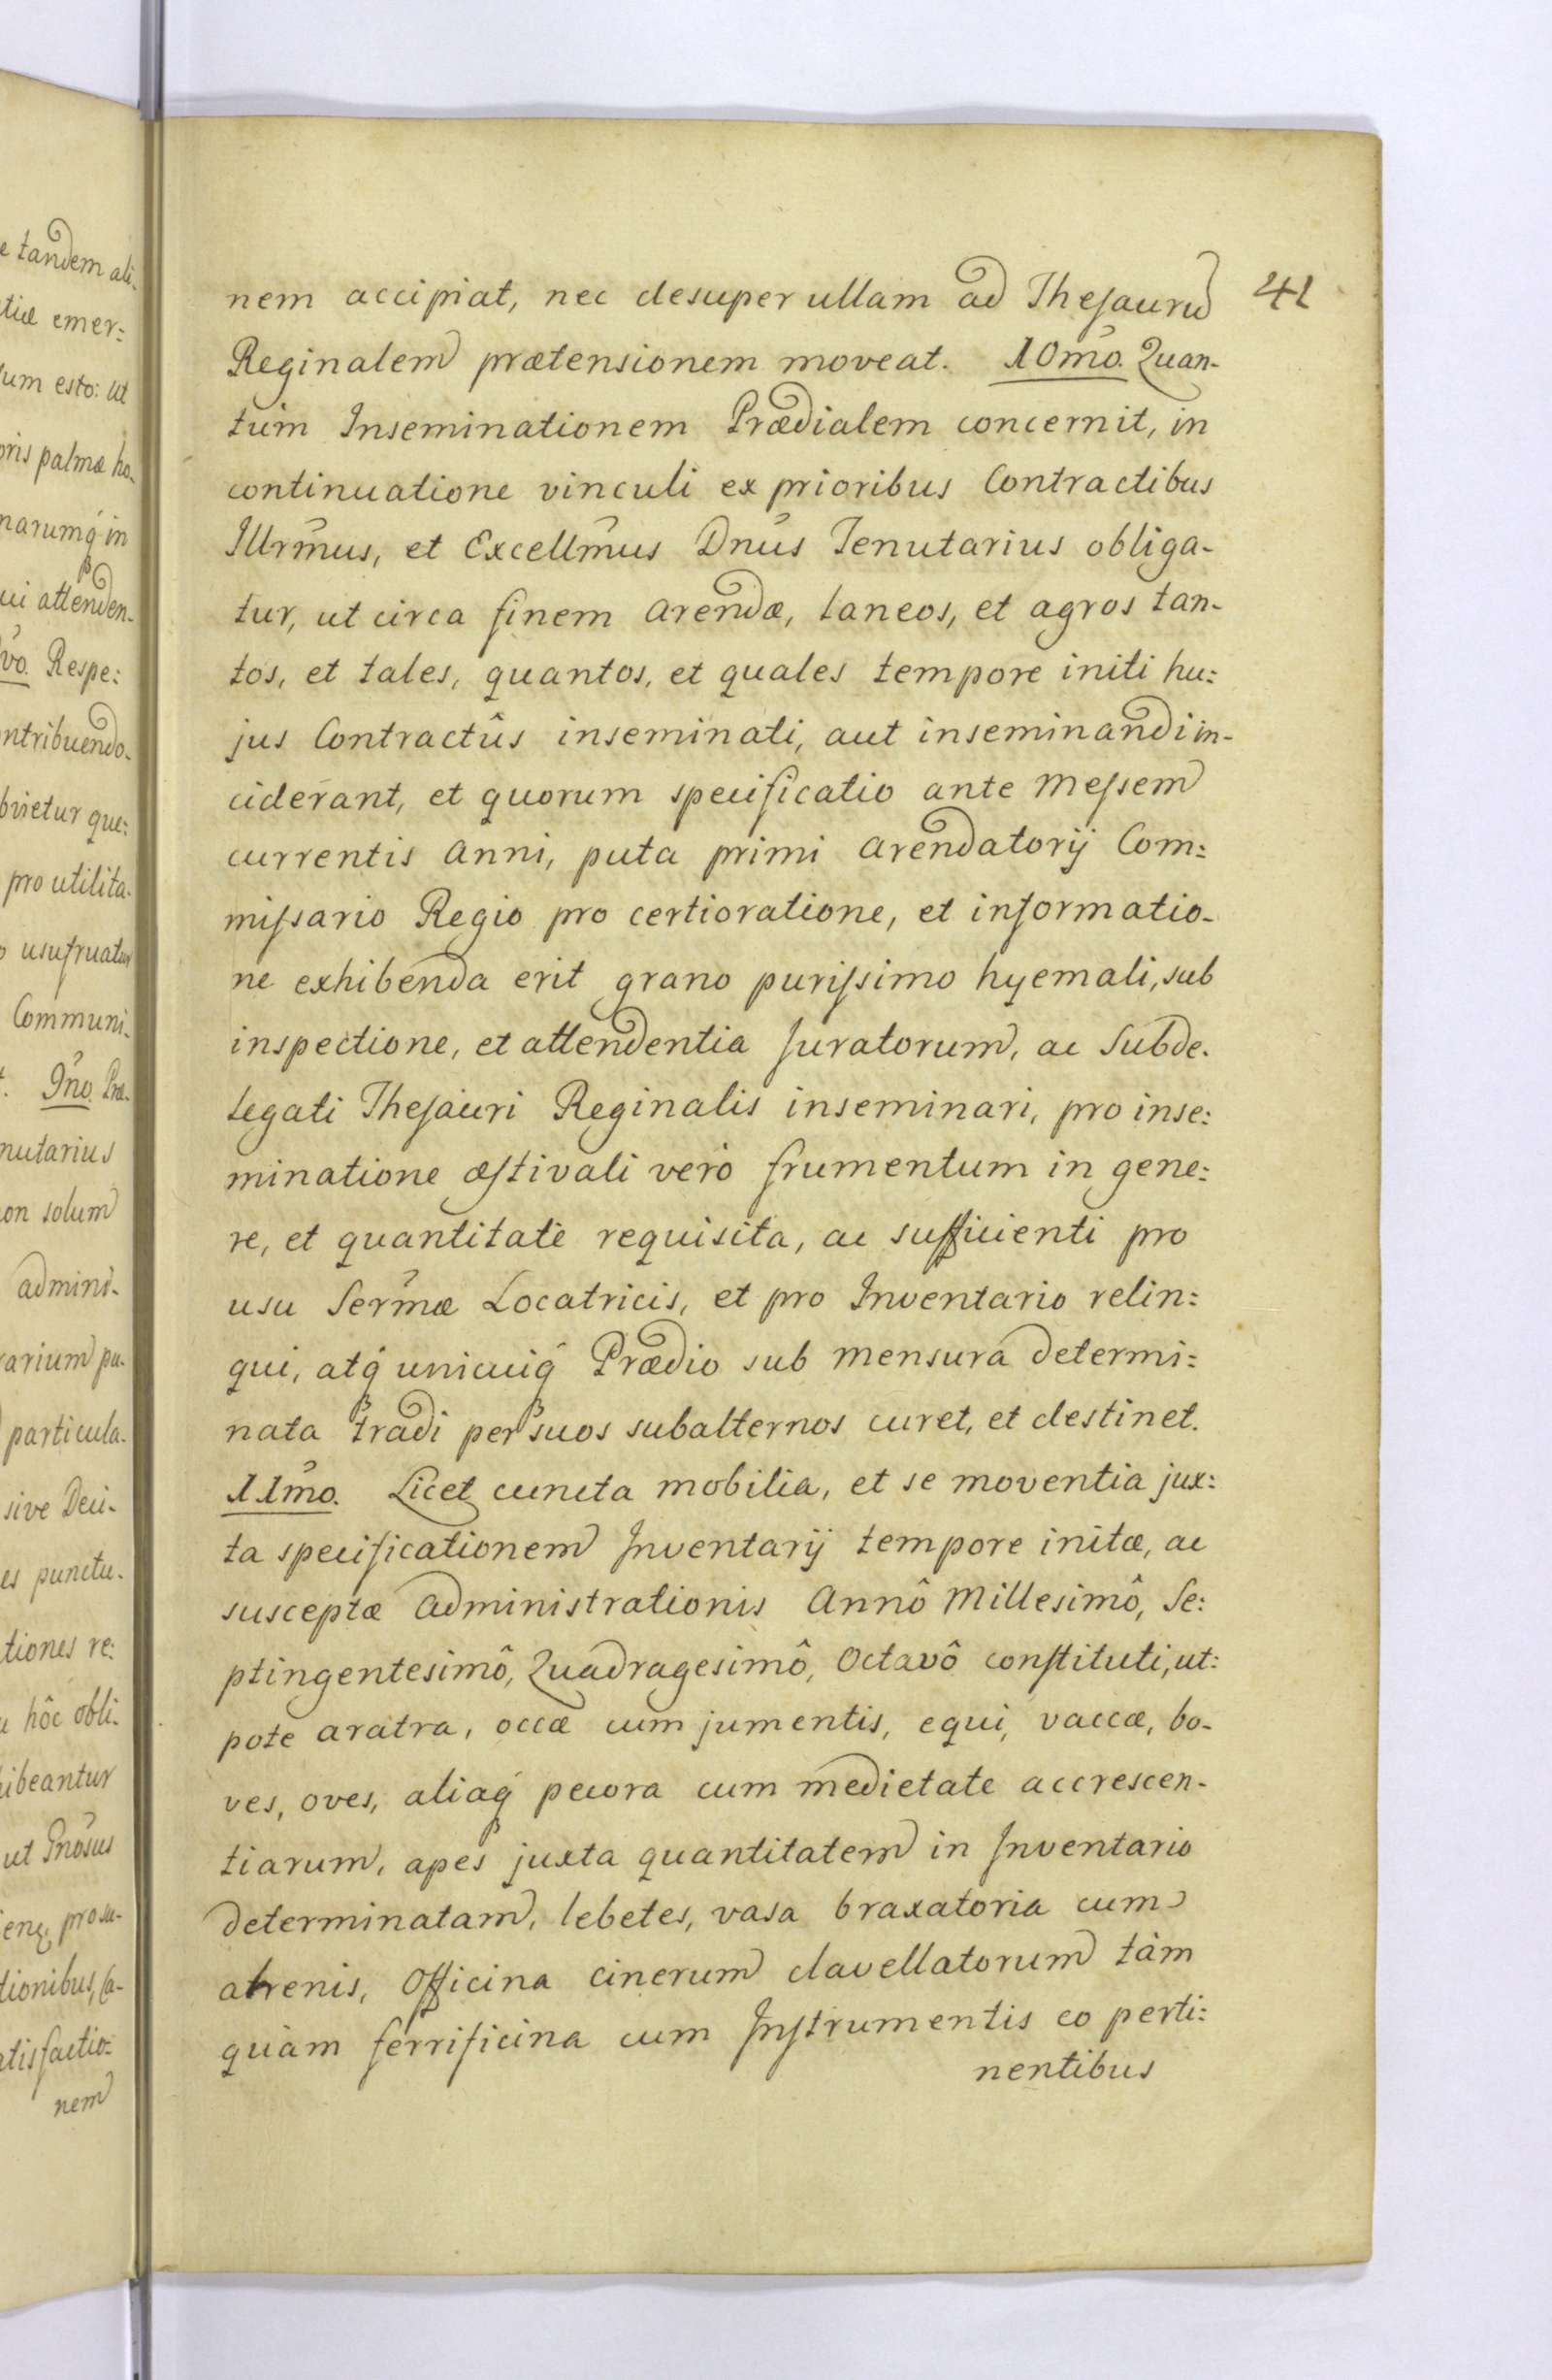 e tandem ali-
tiæ emer:
um esto: ut
oris palmæ ho-
narumq́ in
ui attenden-
vo. Respe:
ntribuendo.
brietur que:
pro utilita-
o usufruatur
Communi-
t. 9no. Præ-
nutarius
on solum
admini-
rarium pu-
particula-
sive Deci-
es punctu-
tiones re:
u hôc obli-
hibeantur
ut Gnosus
ienq́ pro su-
tionibus, Ca-
atisfactio:
nem
41
nem accipiat, nec desuper ullam ad Thesauru͞
Reginalem prætensionem moveat. 10mo. Quan-
tùm Inseminationem Prædialem concernit, in
continuatione vinculi ex prioribus Contractibus
Illrm̃us, et Excellm̃us Dnũs Tenutarius obliga-
tur, ut circa finem arendæ, laneos, et agros tan-
tos, et tales, quantos, et quales tempore initi hu:
jus Contractûs inseminati, aut inseminandi in-
ciderant, et quorum specificatio ante Messem
currentis Anni, puta primi Arendatorij Com:
missario Regio pro certioratione, et informatio-
ne exhibenda erit grano purissimo hyemali, sub
inspectione, et attendentia Juratorum, ac Subde-
legati Thesauri Reginalis inseminari, pro inse:
minatione æstivali verò frumentum in gene:
re, et quantitate requisita, ac sufficienti pro
usu Serm̃æ Locatricis, et pro Inventario relin:
qui, atq́ unicuiq́ Prædio sub mensura determi:
nata tradi per suos subalternos curet, et destinet.
11mo. Licet cuncta mobilia, et se moventia jux:
ta specificationem Inventarij tempore initæ, ac
susceptæ Administrationis Annô Millesimô, Se:
ptingentesimô, Quadragesimô, Octavô constituti, ut:
pote aratra, occæ cum jumentis, equi, vaccæ, bo-
ves, oves, aliaq́ pecora cum medietate accrescen-
tiarum, apes juxta quantitatem in Inventario
determinatam, lebetes, vasa braxatoria cum
ahenis, Officina cinerum clavellatorum tàm
quàm ferrificina cum Instrumentis eo perti:
nentibus